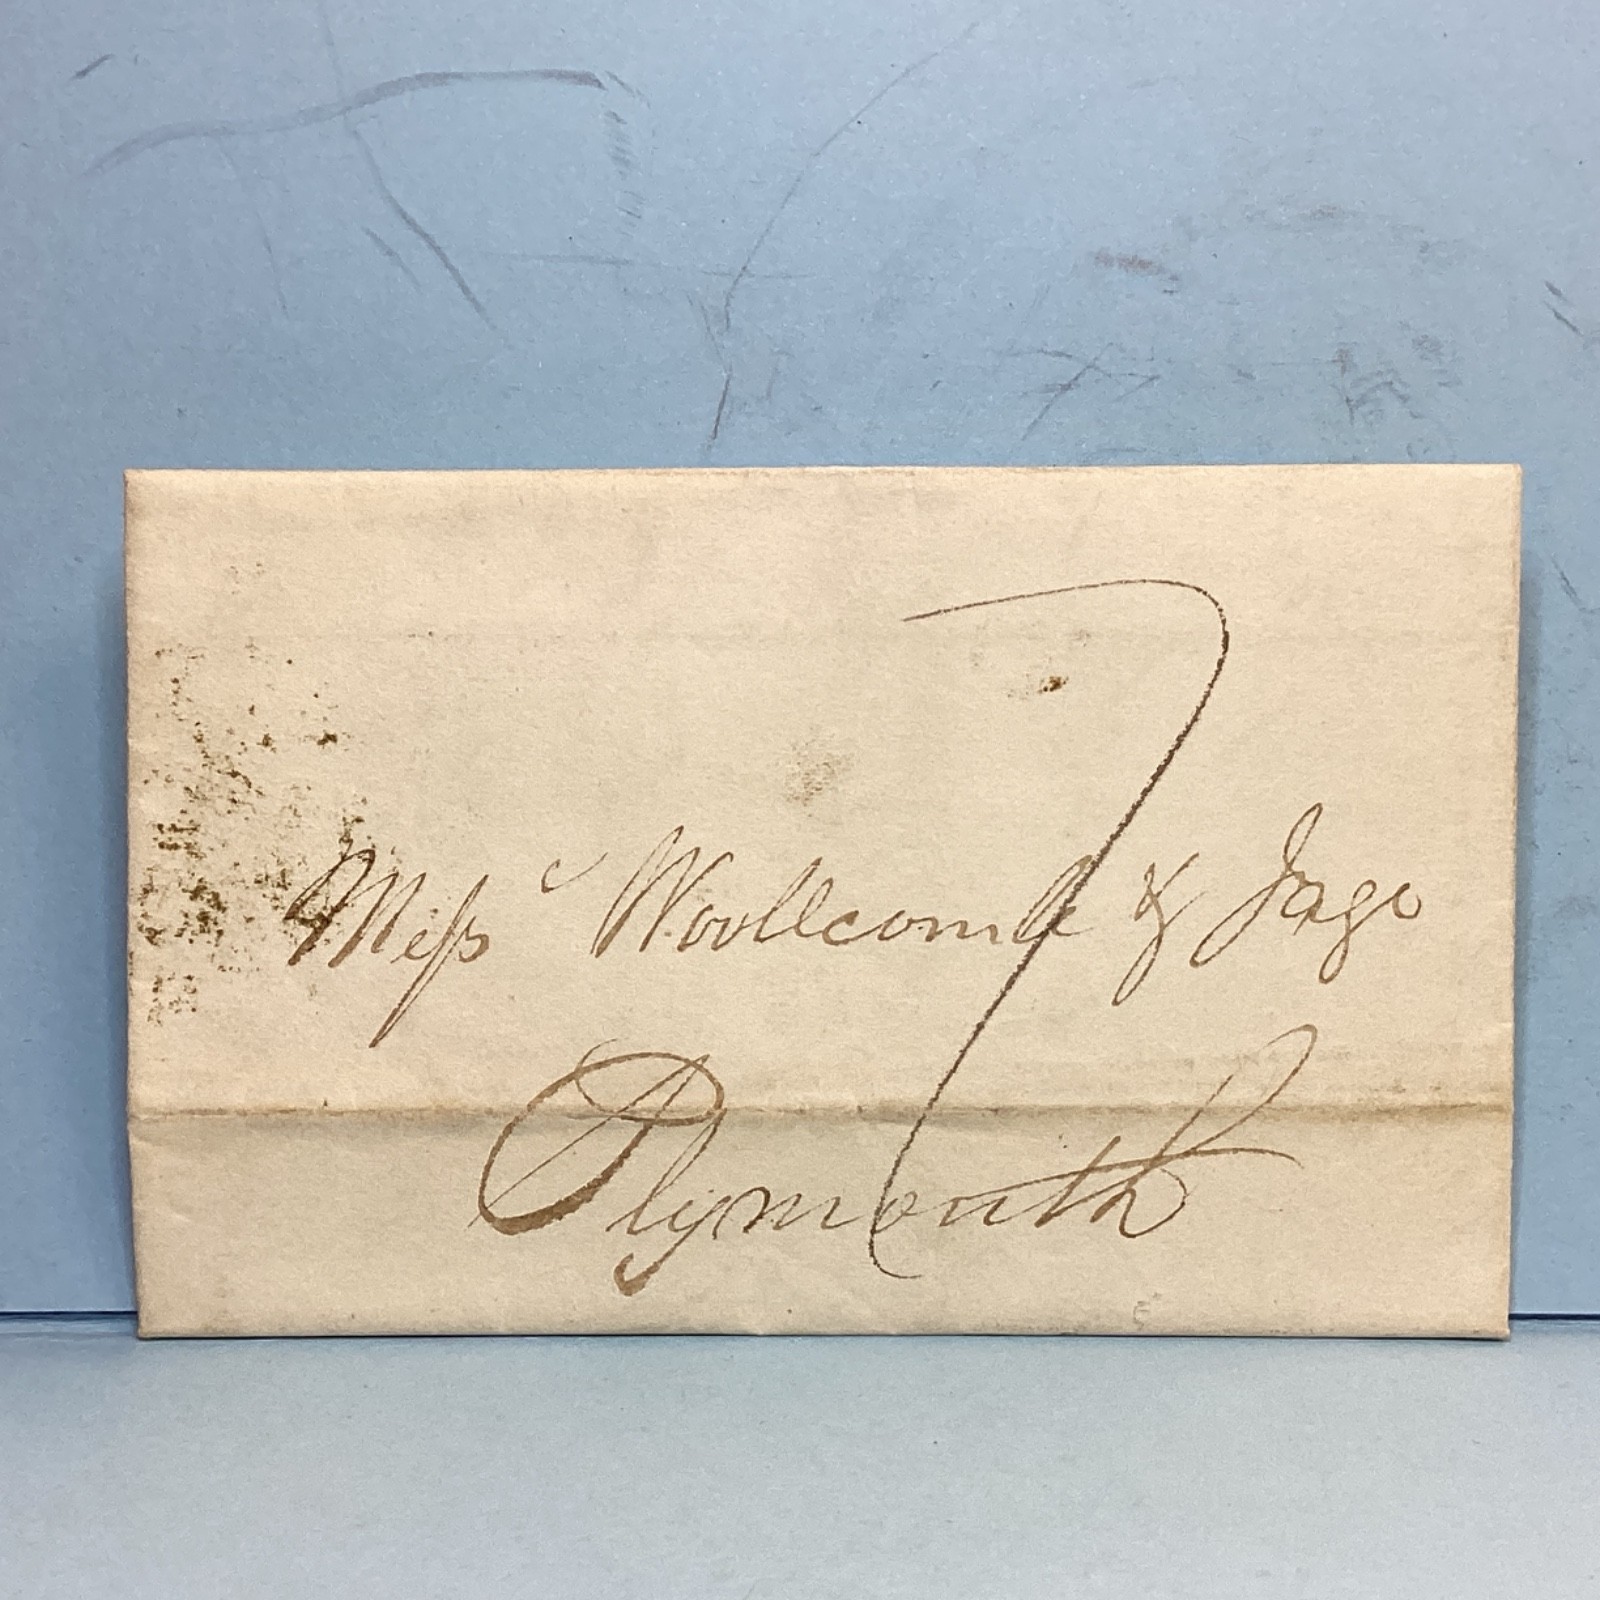 7
Messrs Woollcombe & Jago
Plymouth